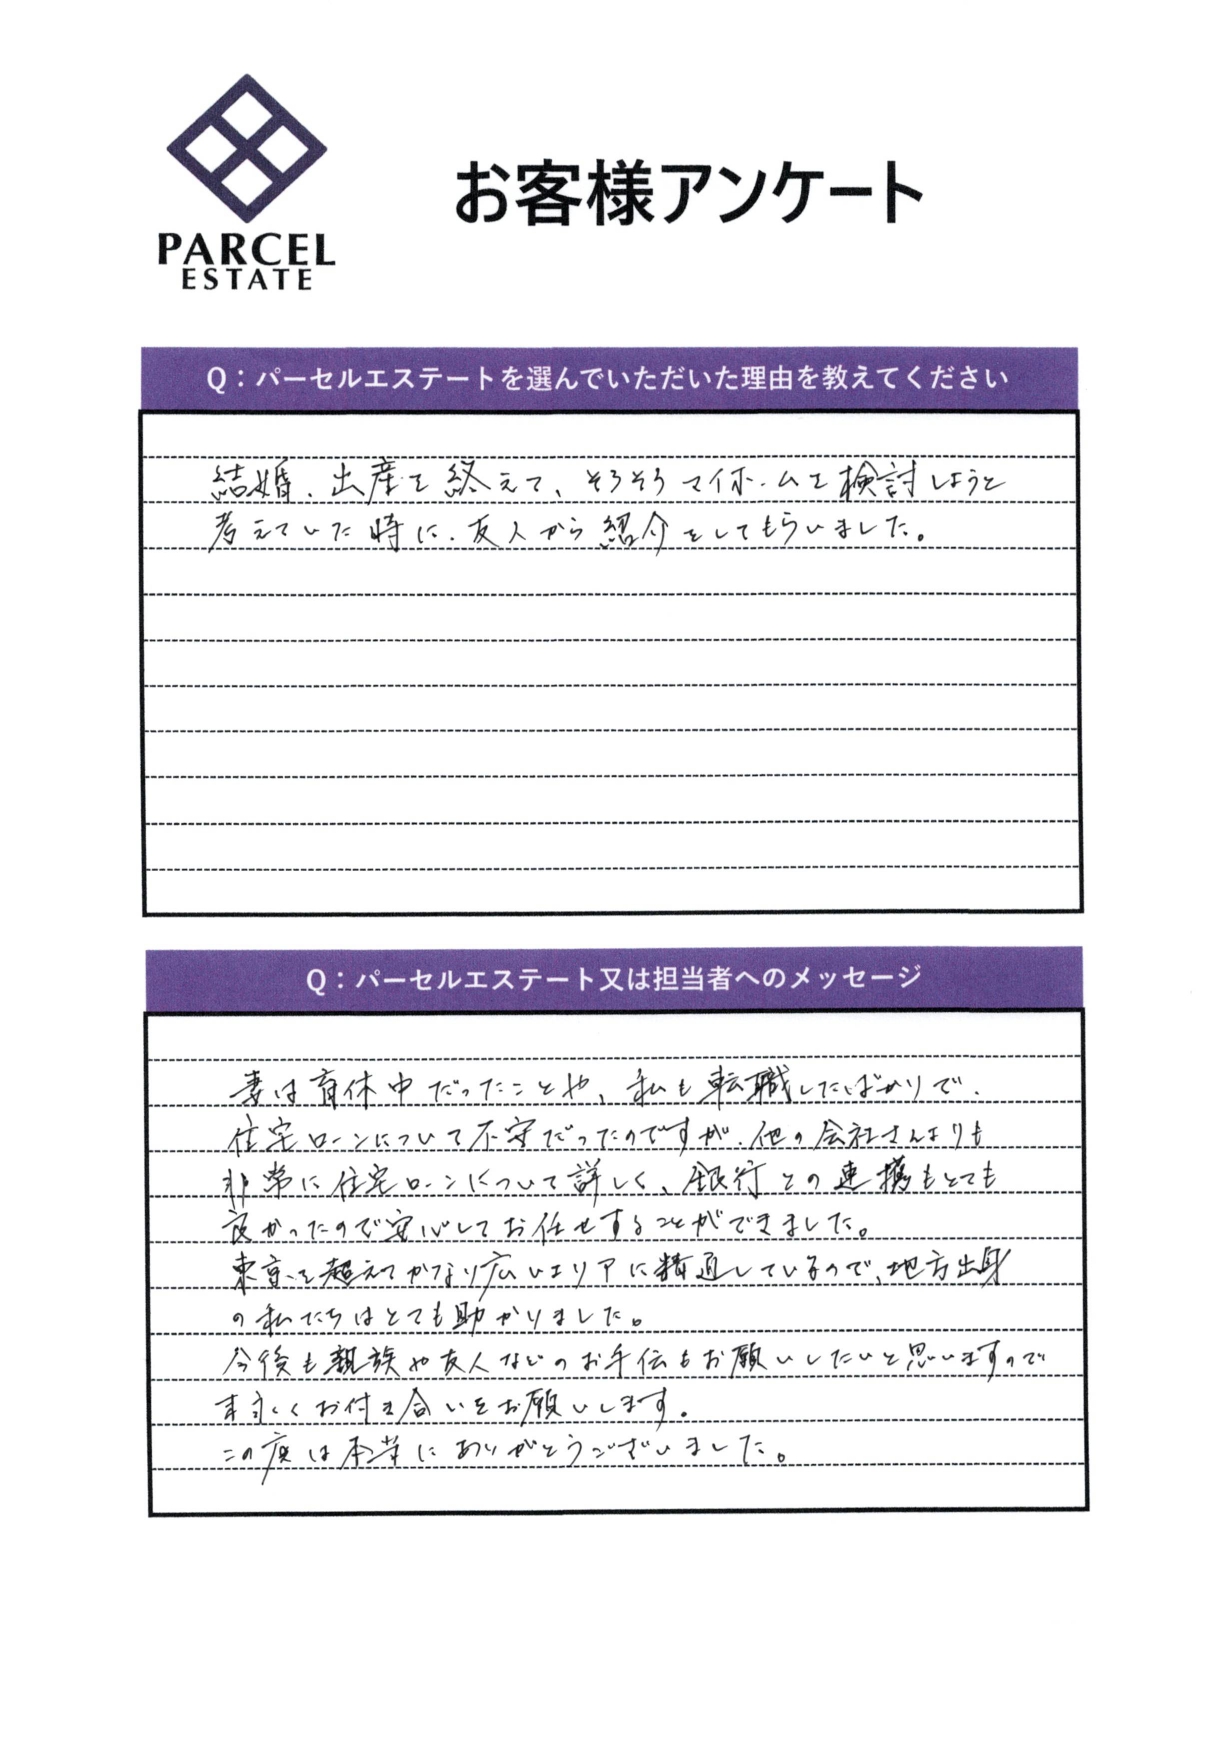 PARCEL
ESTATE
お客様アンケート
Q：パーセルエステートを選んでいただいた理由を教えてください
結婚、出産を終えて、そろそろマイホームを検討しようと
考えていた時に、友人から紹介をしてもらいました。
Q：パーセルエステート又は担当者へのメッセージ
妻は育休中だったことや、私も転職したばかりで、
住宅ローンについて不安だったのですが、他の会社さんよりも
非常に住宅ローンについて詳しく、銀行との連携もとても
良かったので安心してお任せすることができました。
東京を超えてかなり広いエリアに精通しているので、地方出身
の私たちはとても助かりました。
今後も親族や友人などのお手伝もお願いしたいと思いますので
末永くお付き合いをお願いします。
この度は本当にありがとうございました。